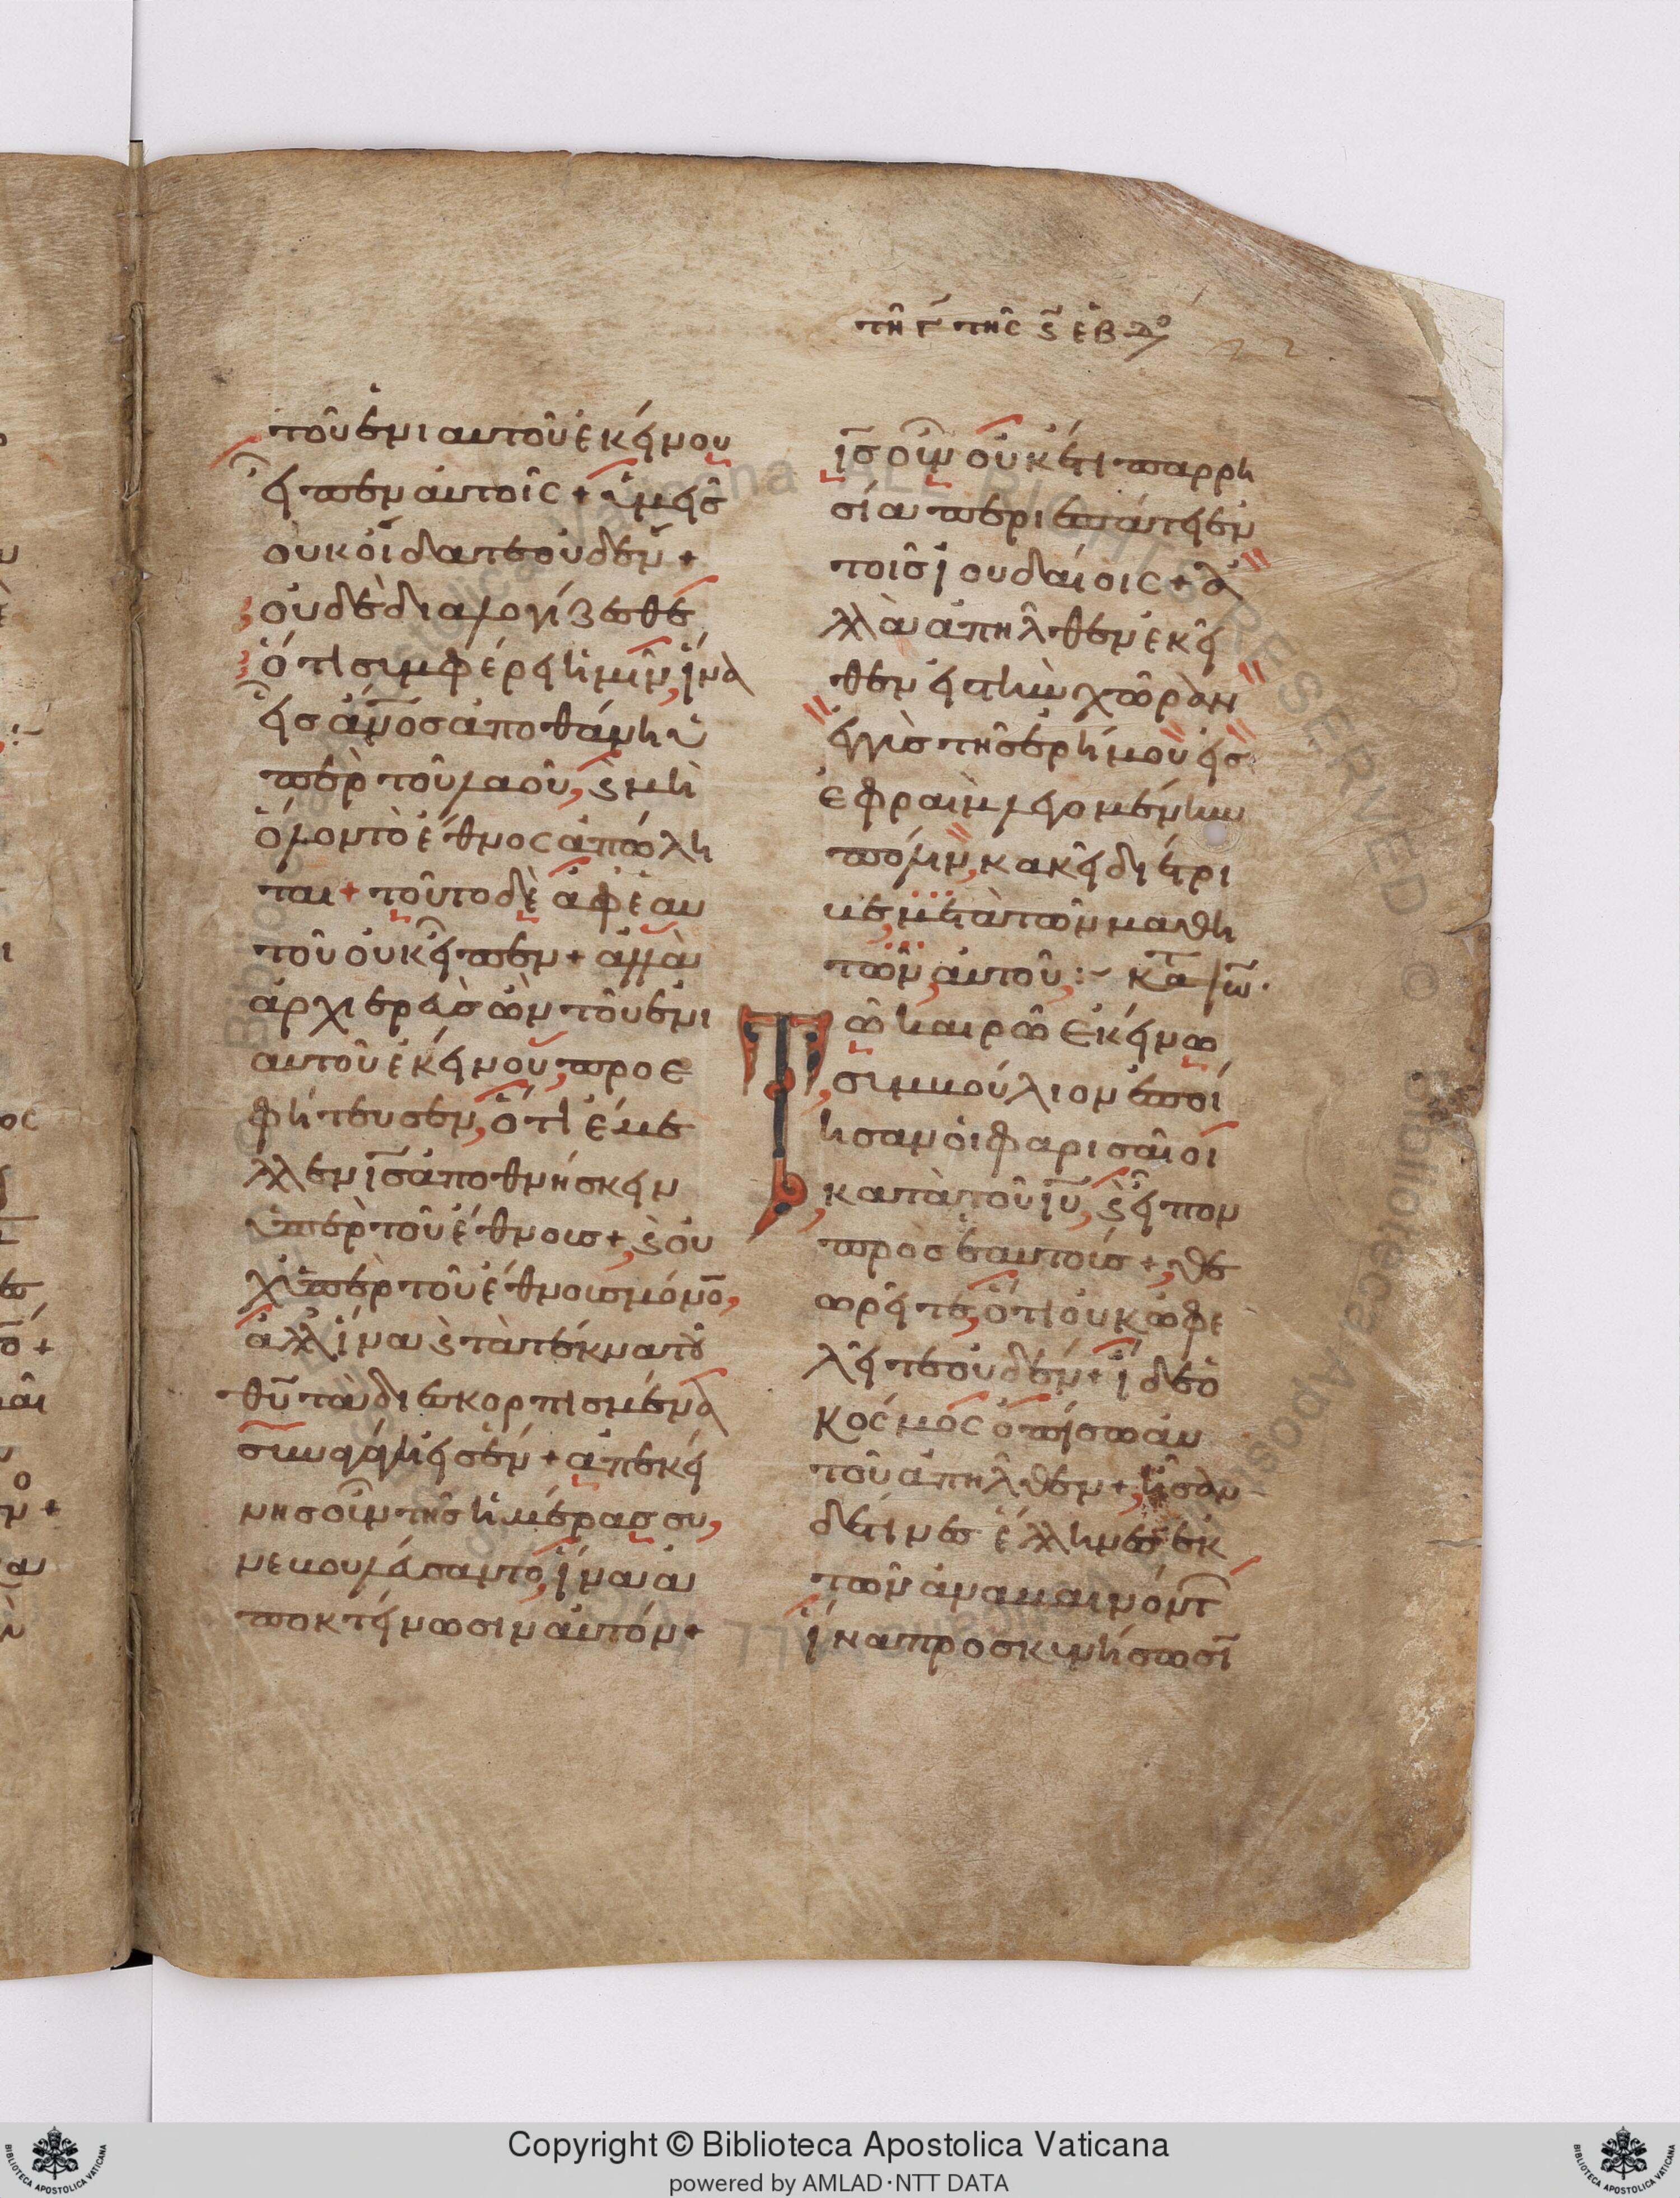 τῆ γ τῆς ς ἑβδο
τοῦ ἐνιαυτοῦ ἐκείνου
εἶπεν αὐτοῖς + ὑμεῖς
οὐκ οἴδατε οὐδέν +
οὐδὲ διαλογίζεσθε
ὅτι συμφέρει ἡμῖν, ἵνα
εἷς ἄνος ἀποθάνη ὑ
πὲρ τοῦ λαοῦ, ϗ μὴ
ὅλον τὸ ἔθνος ἀπόλη
ται + τοῦτο δὲ ἀφ' ἑαυ
τοῦ οὐκ εἶπεν + ἀλλὰ
ἀρχιερεὺς ὢν τοῦ ἐνι
αυτοῦ ἐκείνου, προε
φήτευσεν, ὅτι ἔμε
λλεν ις ἀποθνήσκειν
ὑπὲρ τοῦ ἔθνους +, ϗ οὐ
χ ὑπὲρ τοῦ ἔθνους μόνο,
ἀλλ' ἵνα ϗ τὰ τέκνα τοῦ
θυ τὰ διεσκορπισμένα
συναγάγη εἰς ἕν + ἀπ' ἐκεί
νης οὖν τῆς ἡμέρας συ,
νεβουλεύσαντο, ἵνα ἀ
ποκτείνωσιν αὐτόν +
ις οὖν οὐκέτι παρρη
σία περιεπάτει ἐν
τοῖς ἰουδαίοις + ἀ
λλὰ ἀπῆλθεν ἐκεῖ
θεν εἰς τὴν χώραν
ἐγγὺς τῆς ἐρήμου εἰς
ἐφραὶμ λεγομένην
πόλιν, κακεῖ διέτρι
βε, μετὰ τῶν μαθη
τῶν, αὐτοῦ, :~ κατα ιω.
Τῶ καιρῶ ἐκείνω
, συμβούλιον ἐποί
ησαν οἱ φαρισαῖοι
, κατὰ τοῦ ιυ, ϗ εἶπον
πρὸς ἑαυτούς +, θε
ωρεῖτε, ὅτι οὐκ ὠφε
λεῖτε οὐδέν + ἴδε ὁ
κόσμος ὀπίσω αὐ
τοῦ ἀπῆλθεν +, ἦσαν
δέ τινες ἕλληνες ἐκ
τῶν ἀναβαινόντ
ἵνα προσκυνήσωσι
Copyright © Biblioteca Apostolica Vaticana
powered by AMLAD·NTT DATA